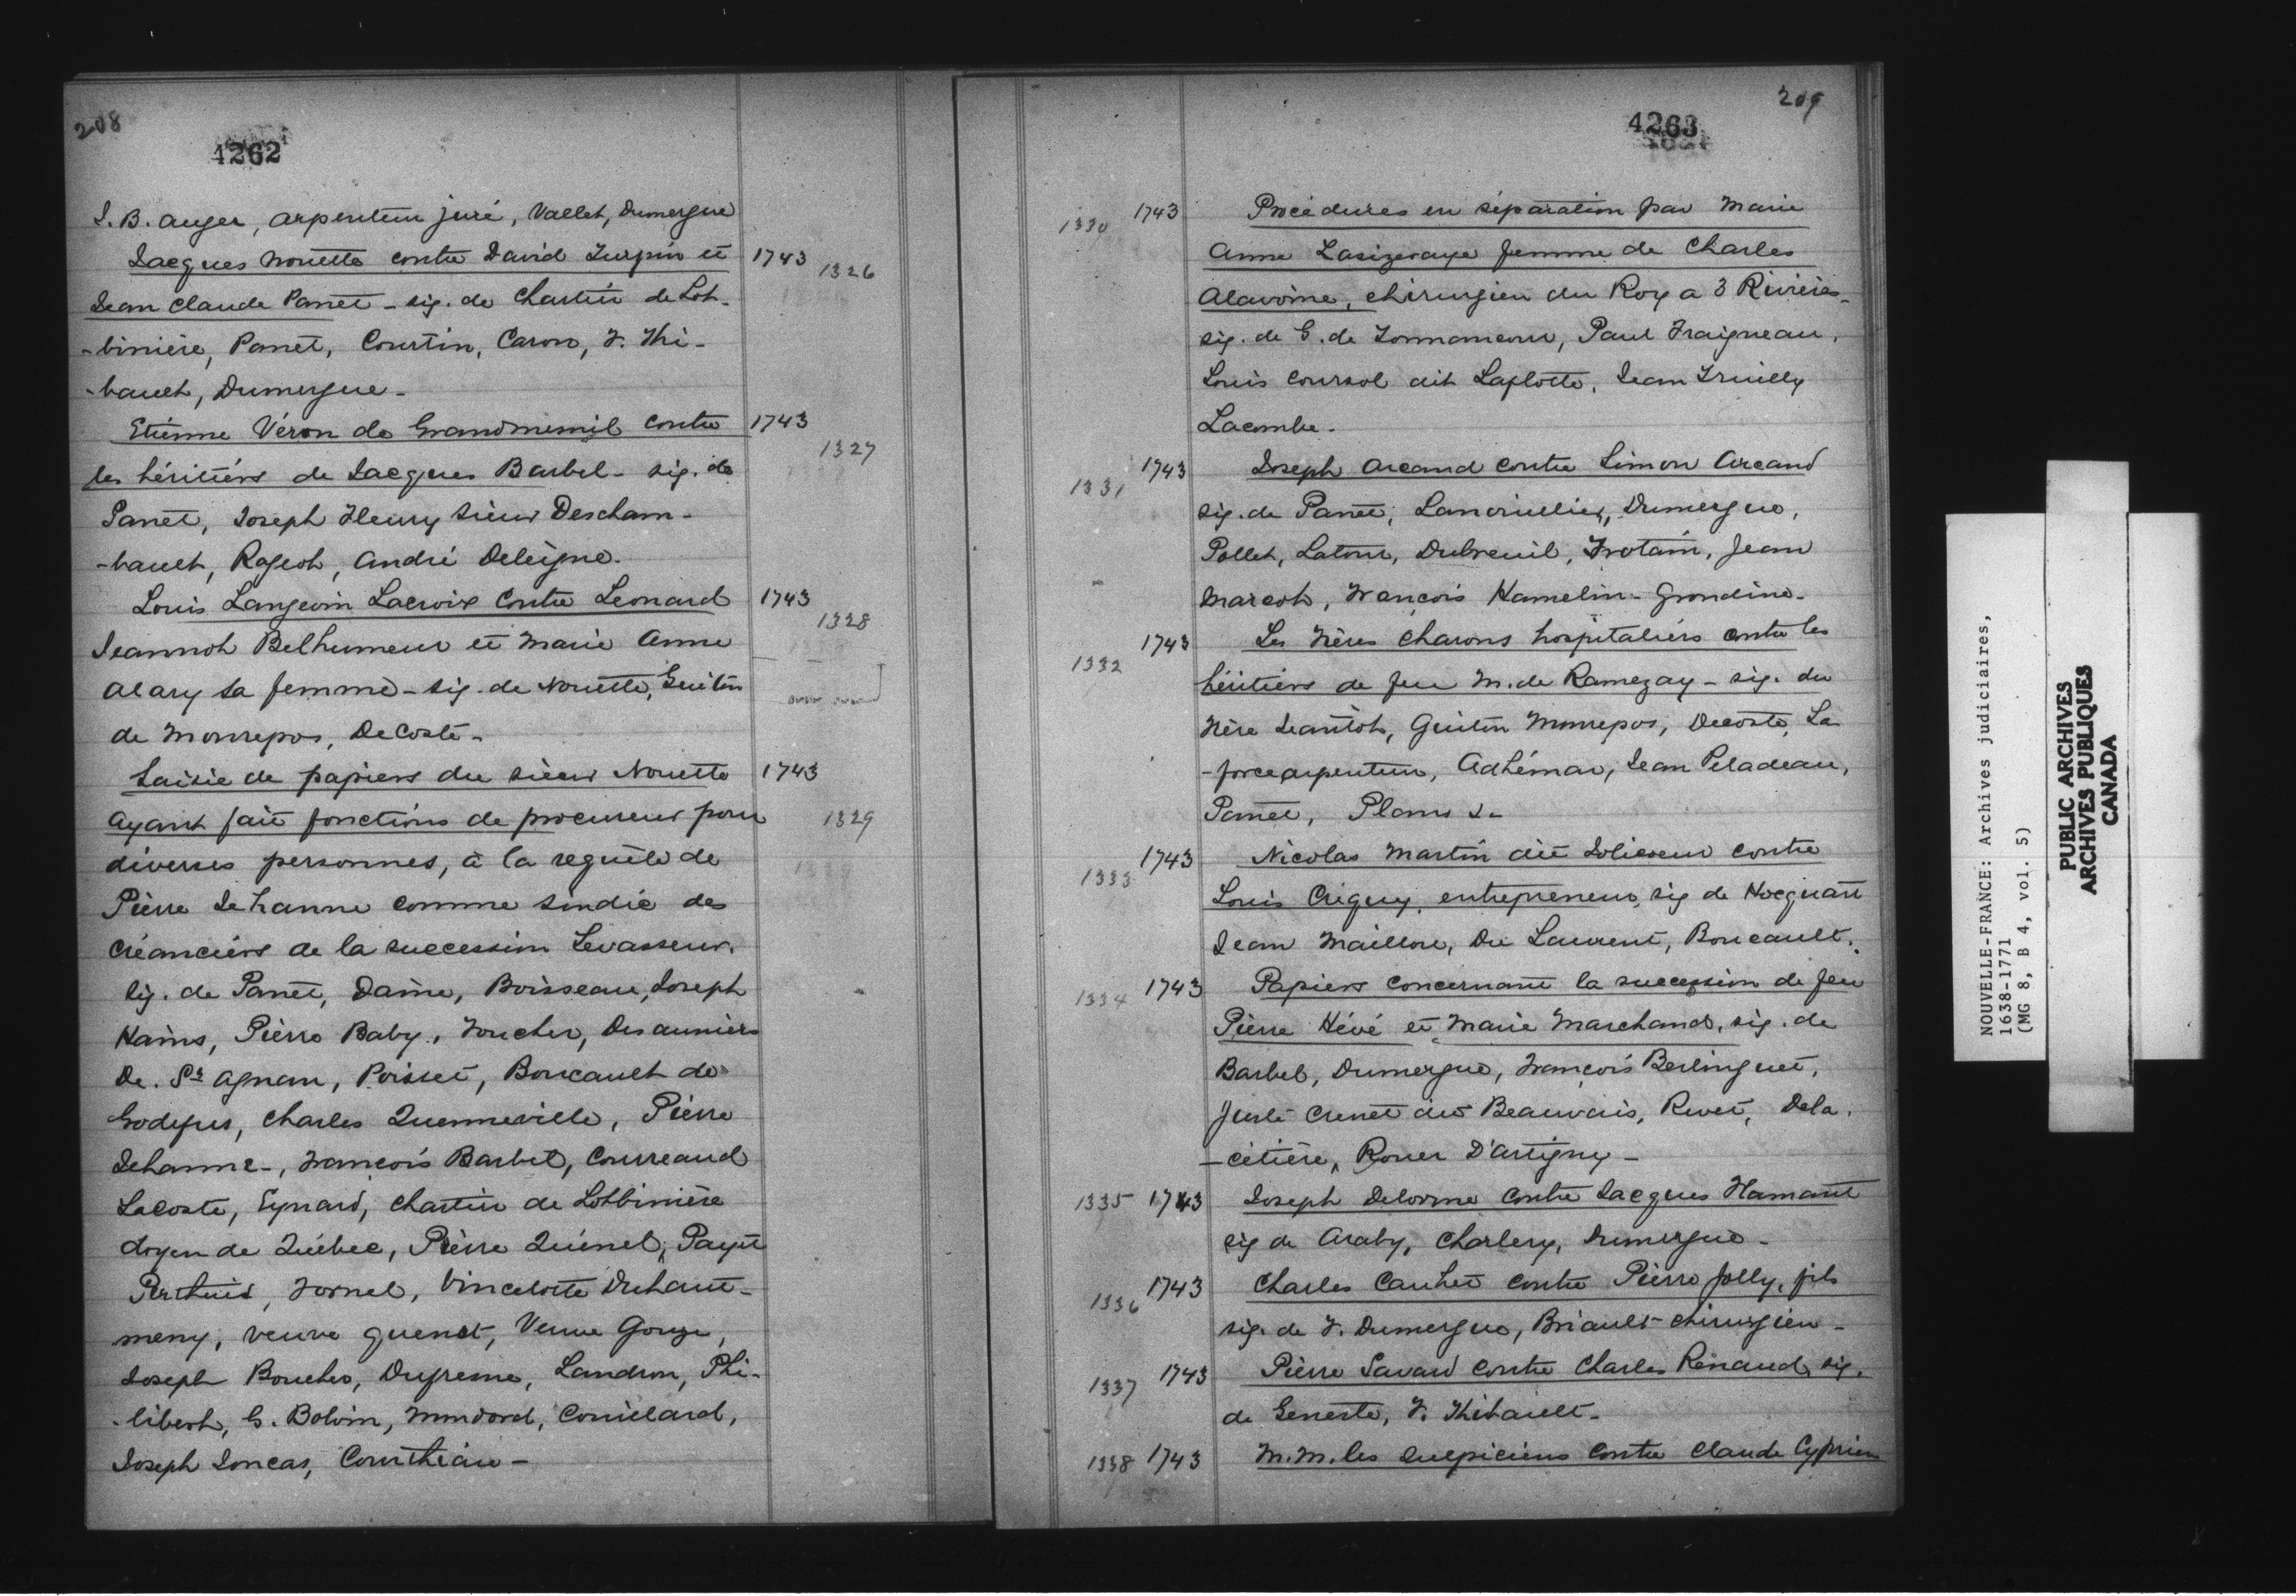 208
4262
J. B. Auger, arpenteur juré, Vallet, Dumergue
Jacques Nouette contre David Turpin et 1743 1326
Jean Claude Panet - sig. de Chartier de Lot-
-binière, Panet, Courtin, Caron, F. Thi-
-bault, Dumergue -
Etienne Véron de Grandmesnil contre 1743 1327
les héritiers de Jacques Barbel - sig. de
Panet, Joseph Fleury sieur Descham-
-bault, Rageot, André Deleigne.
Louis Langevin Lacroix contre Leonard 1743 1328
Jeannot Belhumeur et Marie Anne
Alary sa femme - sig. de Nouette, Guiton
de Monrepos, DeCoste -
Saisie de papiers du sieur Nouette 1743
ayant fait fonctions de procureur pour 1329
diverses personnes, à la requête de
Pierre Jehanne comme sindic des
créanciers de la succession Levasseur.
sig. de Panet, Daine, Boisseau, Joseph
Hains, Pierre Baby, Foucher, Desauniers
De. St Agnan, Poisset, Boucault de
Godefus, Charles Quenneville, Pierre
Jehanne -, François Barbel, Courreaud
Lacoste, Eynard, Chartier de Lotbinière
doyen de Québec, Pierre Quénel, Payet
Perthuis, Fornel, Vincelotte Duhaut-
meny, veuve Guenet, Veuve Gouze,
Joseph Boucher, Dufresne, Landron, Phi-
-libert, G. Bolvin, Mondord, Couillard,
Joseph Joncas, Courthiau -
209
4263
1330 1743 Procédures en séparation par Marie
Anne Lasizeraye femme de Charles
Alavoine, chirurgien du Roy a 3 Rivières -
sig. de G. de Tonnancour, Paul Fraigneau,
Louis Coursol dit Laflotte, Jean Truilly
Lacombe.
1331 1743 Joseph Arcand contre Simon Arcand
sig. de Panet, Lanouillier, Dumergue,
Pollet, Latour, Dubreuil, Trotain, Jean
Marcot, François Hamelin - Grondine -
1332 1743 Les Frères Charons hospitaliers contre les
héritiers de feu M. de Ramezay - sig. du
Frère Jeantot, Guiton Monrepos, Decoste, La
-force arpenteur, Adhémar, Jean Peladeau,
Panet, Plans &-
1333 1743 Nicolas Martin dit Jolicoeur contre
Louis Créquy, entrepreneur, sig de Hocquart
Jean Maillou, Du Laurent, Boucault.
1334 1743 Papiers concernant la succession de feu
Pierre Hévé et Marie Marchand, sig. de
Barbel, Dumergue, François Berlinguet,
Juste Crenet dit Beauvais, Rivet, Dela.
-cétière, Rouer D'Artigny -
1335 1743 Joseph Delorme contre Jacques Hamant
sig de Araby, Charlery, Dumergue -
1336 1743 Charles Cauhet contre Pierre Jolly, fils
sig. de F. Dumergue, Briault chirurgien -
1337 1743 Pierre Savard contre Charles Renaud, sig.
de Geneste, F. Thibault -
1338 1743 M.M. les Sulpiciens contre Claude Cyprien
NOUVELLE-FRANCE: Archives judiciaires,
1638-1771
(MG 8, B 4, vol. 5)
PUBLIC ARCHIVES
ARCHIVES PUBLIQUES
CANADA